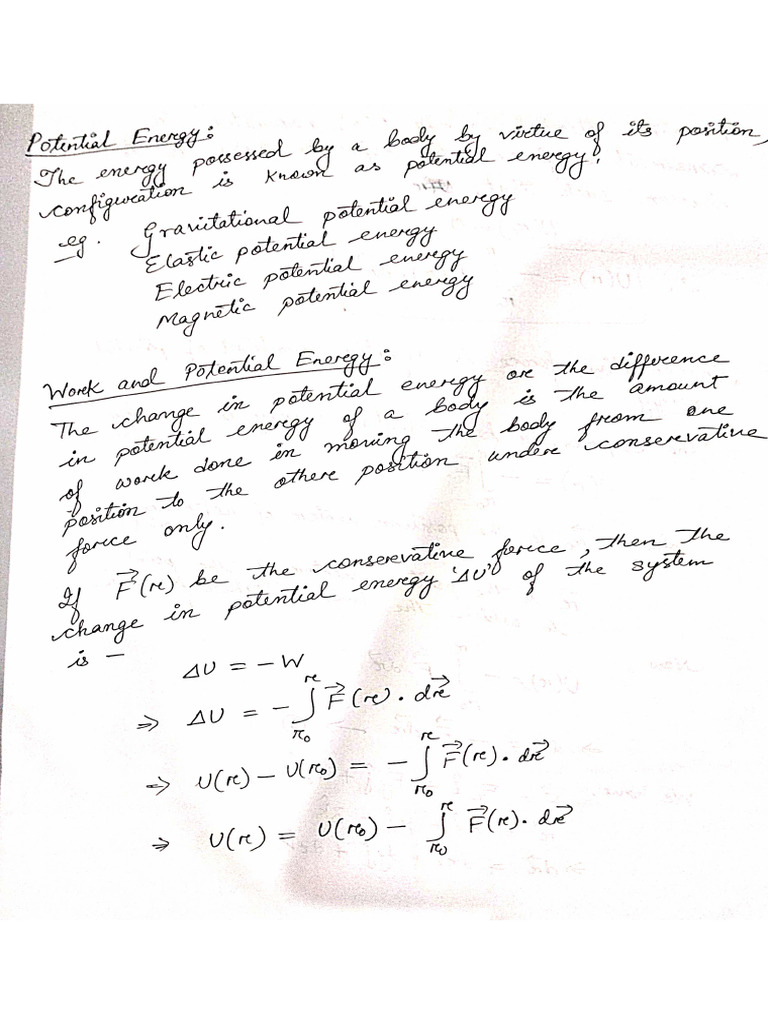 Potential Energy:
The energy possessed by a body by virtue of its position,
configuration is known as potential energy.
eg. Gravitational potential energy
Elastic potential energy
Electric potential energy
Magnetic potential energy
Work and Potential Energy:
The change in potential energy or the difference
in potential energy of a body is the amount
of work done in moving the body from one
position to the other position under conservative
force only.
If F⃗(r) be the conservative force, then the
change in potential energy 'ΔU' of the system
is –
ΔU = -W
⇒ ΔU = -∫_{r₀}^{r} F⃗(r). dr⃗
⇒ U(r) - U(r₀) = -∫_{r₀}^{r} F⃗(r). dr⃗
⇒ U(r) = U(r₀) - ∫_{r₀}^{r} F⃗(r). dr⃗